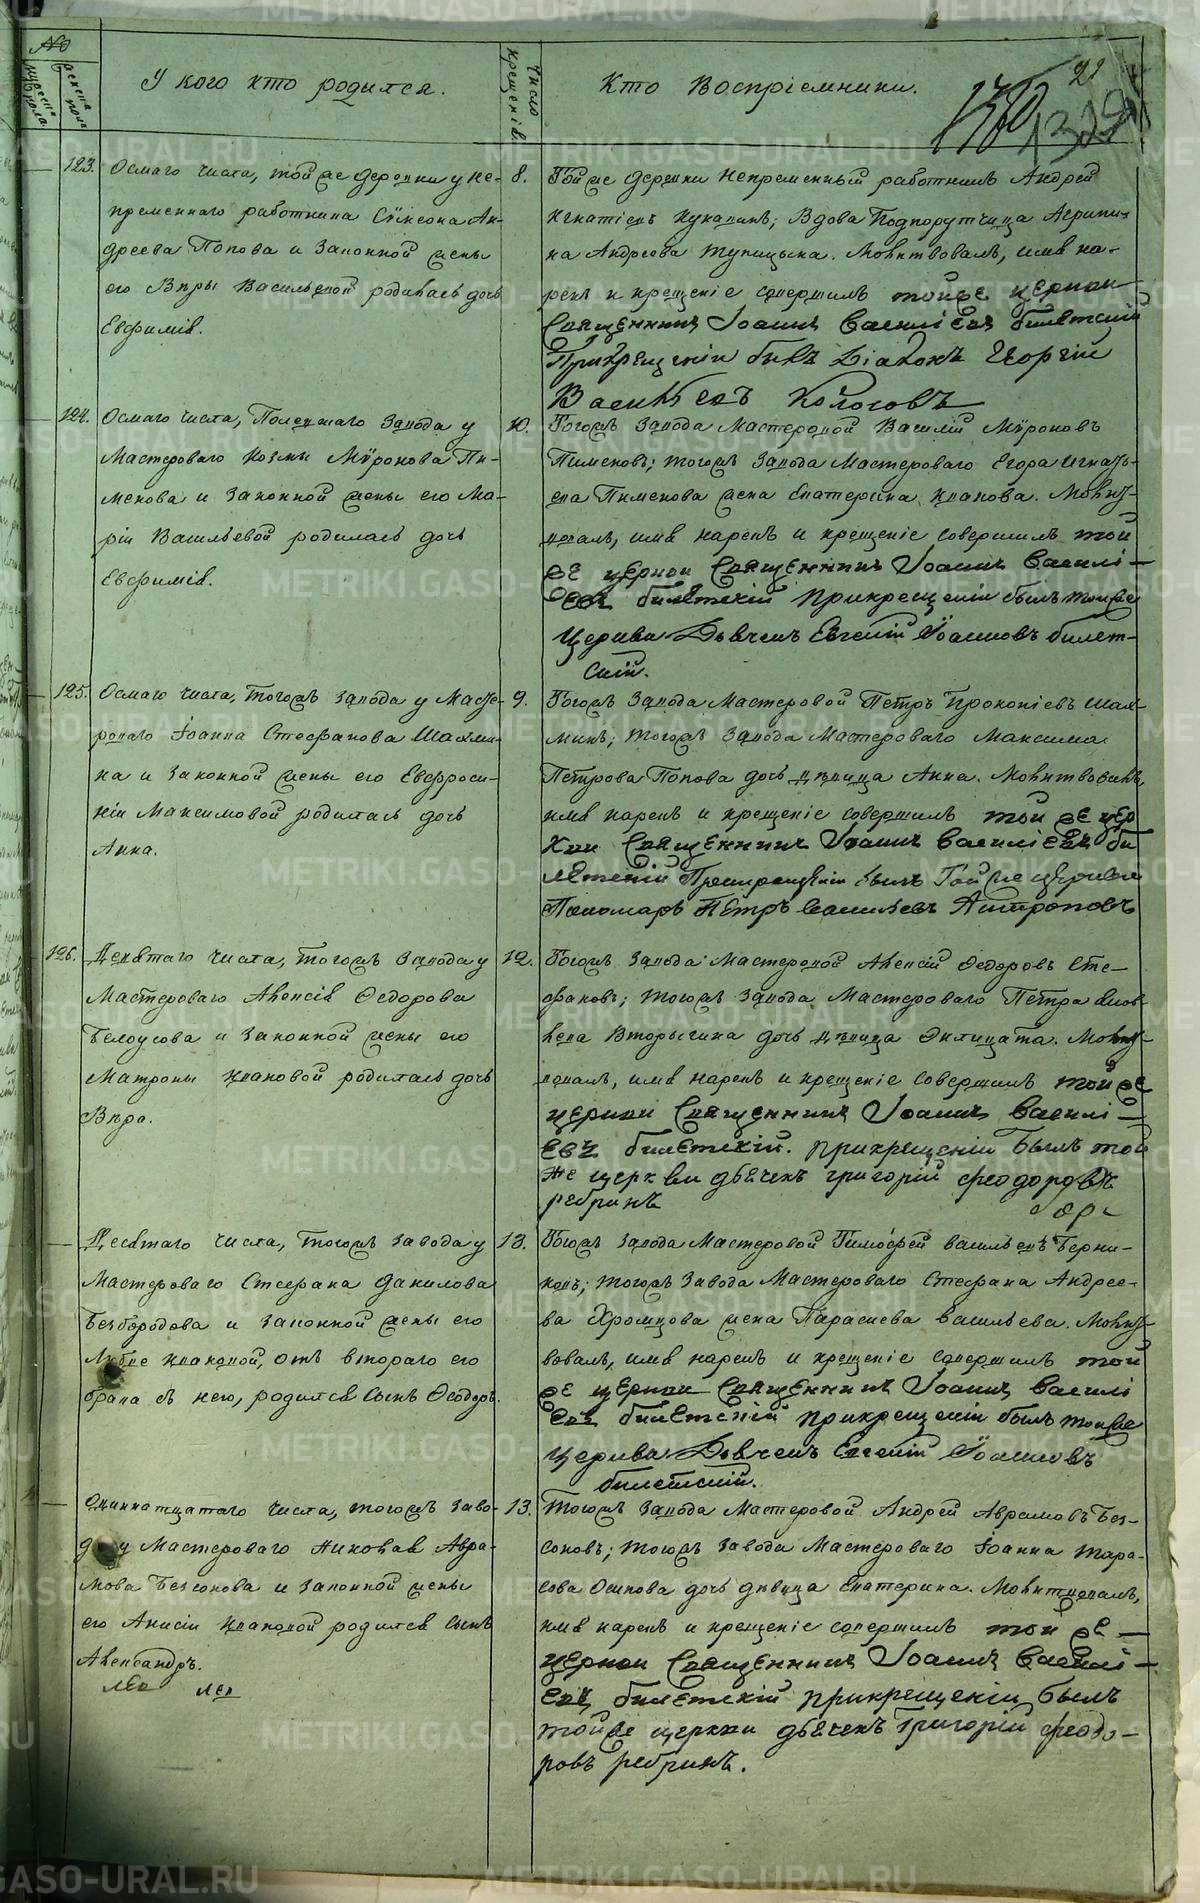 №
мужеска пола.
женска пола.
У кого кто родился.
Число крещенія.
Кто Воспріемники.
21
1329
123.
Осмаго числа, той же деревни у не-
пременнаго работника Сѵмеона Ан-
дреева Попова и законной жены
его Вѣры Васильевой родилась дочь
Евфимія.
8.
Той же деревни непременный работникъ Андрей
Игнатіевъ Кукаринъ; Вдова Подпорутчица Агрипи-
на Андреева Тупицына. Молитвовалъ, имя на-
рекъ и крещеніе совершилъ тойже церкви
Священникъ Іоаннъ Василіевъ билетскій
Прикрещеніи былъ Діаконъ Георгій
Васильевъ Колосовъ
124.
Осмаго числа, Полевскаго завода у
Мастероваго Козмы Мѵронова Пи-
менова и законной жены его Ма-
ріи Васильевой родилась дочь
Евфимія.
10.
Тогожъ завода Мастеровой Василій Мѵроновъ
Пименовъ; тогожъ завода Мастероваго Егора Игнать-
ева Пименова жена Екатерина Иванова. Молит-
вовалъ, имя нарекъ и крещеніе совершилъ той
же церкви Священникъ Іоаннъ Василі-
евъ билетскій прикрещеніи былъ тойже
Церкви Дьячекъ Евгеній Іоанновъ билет-
скій.
125.
Осмаго числа, тогожъ завода у Масте-
роваго Іоанна Стефанова Шахми-
на и законной жены его Евфроси-
ніи Максимовой родилась дочь
Анна.
9.
Тогожъ завода Мастеровой Петръ Прокопіевъ Шах-
минъ; тогожъ завода Мастероваго Максима
Петрова Попова дочь дѣвица Анна. Молитвовалъ,
имя нарекъ и крещеніе совершилъ той же цер
кви Священникъ Іоаннъ Василіевъ би
летскій Прикрещеніи былъ Той же церкви
Пономарь Петръ Васильевъ Антроповъ
126.
Девятаго числа, тогожъ завода у
Мастероваго Алексія Ѳедорова
Белоусова и законной жены его
Матроны Ивановой родилась дочь
Вѣра.
12.
Тогожъ завода Мастеровой Алексій Ѳедоровъ Сте-
фановъ; тогожъ завода Мастероваго Петра Яков-
лева Вторыгина дочь дѣвица Филицата. Молит-
вовалъ, имя нарекъ и крещеніе совершилъ той же
церкви Священникъ Іоаннъ Василі-
евъ билетскій. прикрещеніи былъ той
же церкви дьячекъ григорій феодоровъ
ребринъ
Десятаго числа, тогожъ завода у
Мастероваго Стефана Данилова
Безбородова и законной жены его
Любве Ивановой, отъ втораго его
брака съ нею, родился сынъ Ѳеодоръ.
13.
Тогожъ завода Мастеровой Тимофей Васильевъ Берни-
ковъ; тогожъ завода Мастероваго Стефана Андрее-
ва Хромцова жена Параскева Васильева. Молит-
вовалъ, имя нарекъ и крещеніе совершилъ той
же церкви Священникъ Іоаннъ Василі
евъ билетскій прикрещеніи былъ тойже
Церкви Дьячекъ Евгеній Іоанновъ
билетскій.
Одиннатцатаго числа, тогожъ заво-
да у Мастероваго Николая Авра-
мова Безсонова и законной жены
его Анисіи Ивановой родился сынъ
Александръ.
13.
Тогожъ завода Мастеровой Андрей Аврамовъ Без-
соновъ; тогожъ завода Мастероваго Іоанна Тара-
сова Осипова дочь дѣвица Екатерина. Молитвовалъ,
имя нарекъ и крещеніе совершилъ той же
церкви Священникъ Іоаннъ Василі-
евъ билетскій прикрещеніи былъ
тойже церкви дьячекъ Григорій феодо-
ровъ ребринъ.